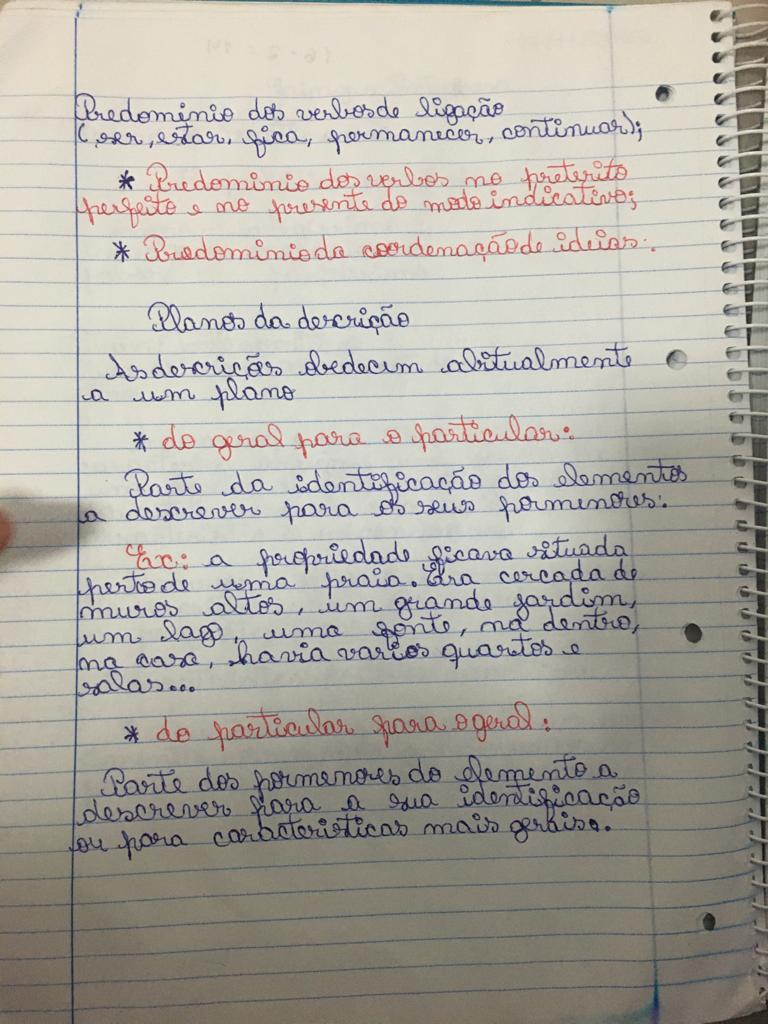 Predominio dos verbos de ligação
(ser, estar, fica, permanecer, continuar);
* Predominio dos verbos no preterito
perfeito e no presente do modo indicativo;
* Predominio da coordenação de ideias.
Planos da descrição
As descrições obedecem abitualmente
a um plano
* do geral para o particular:
Parte da identificação dos elementos
a descrever para os seus pormenores.
Ex: a propriedade ficava situada
perto de uma praia. Era cercada de
muros altos, um grande jardim,
um lago, uma fonte, na dentro,
na casa, havia varios quartos e
salas...
* do particular para o geral:
Parte dos pormenores do elemento a
descrever para a sua identificação
ou para caracteristicas mais gerais.